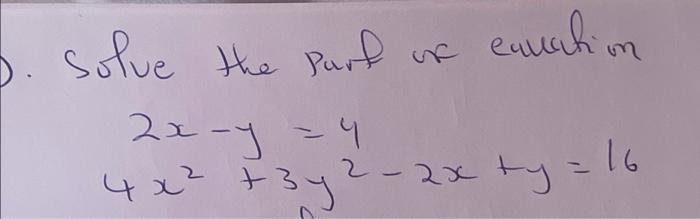 ). Solve the Part of equation
2x - y = 4
4x² + 3y² - 2x + y = 16